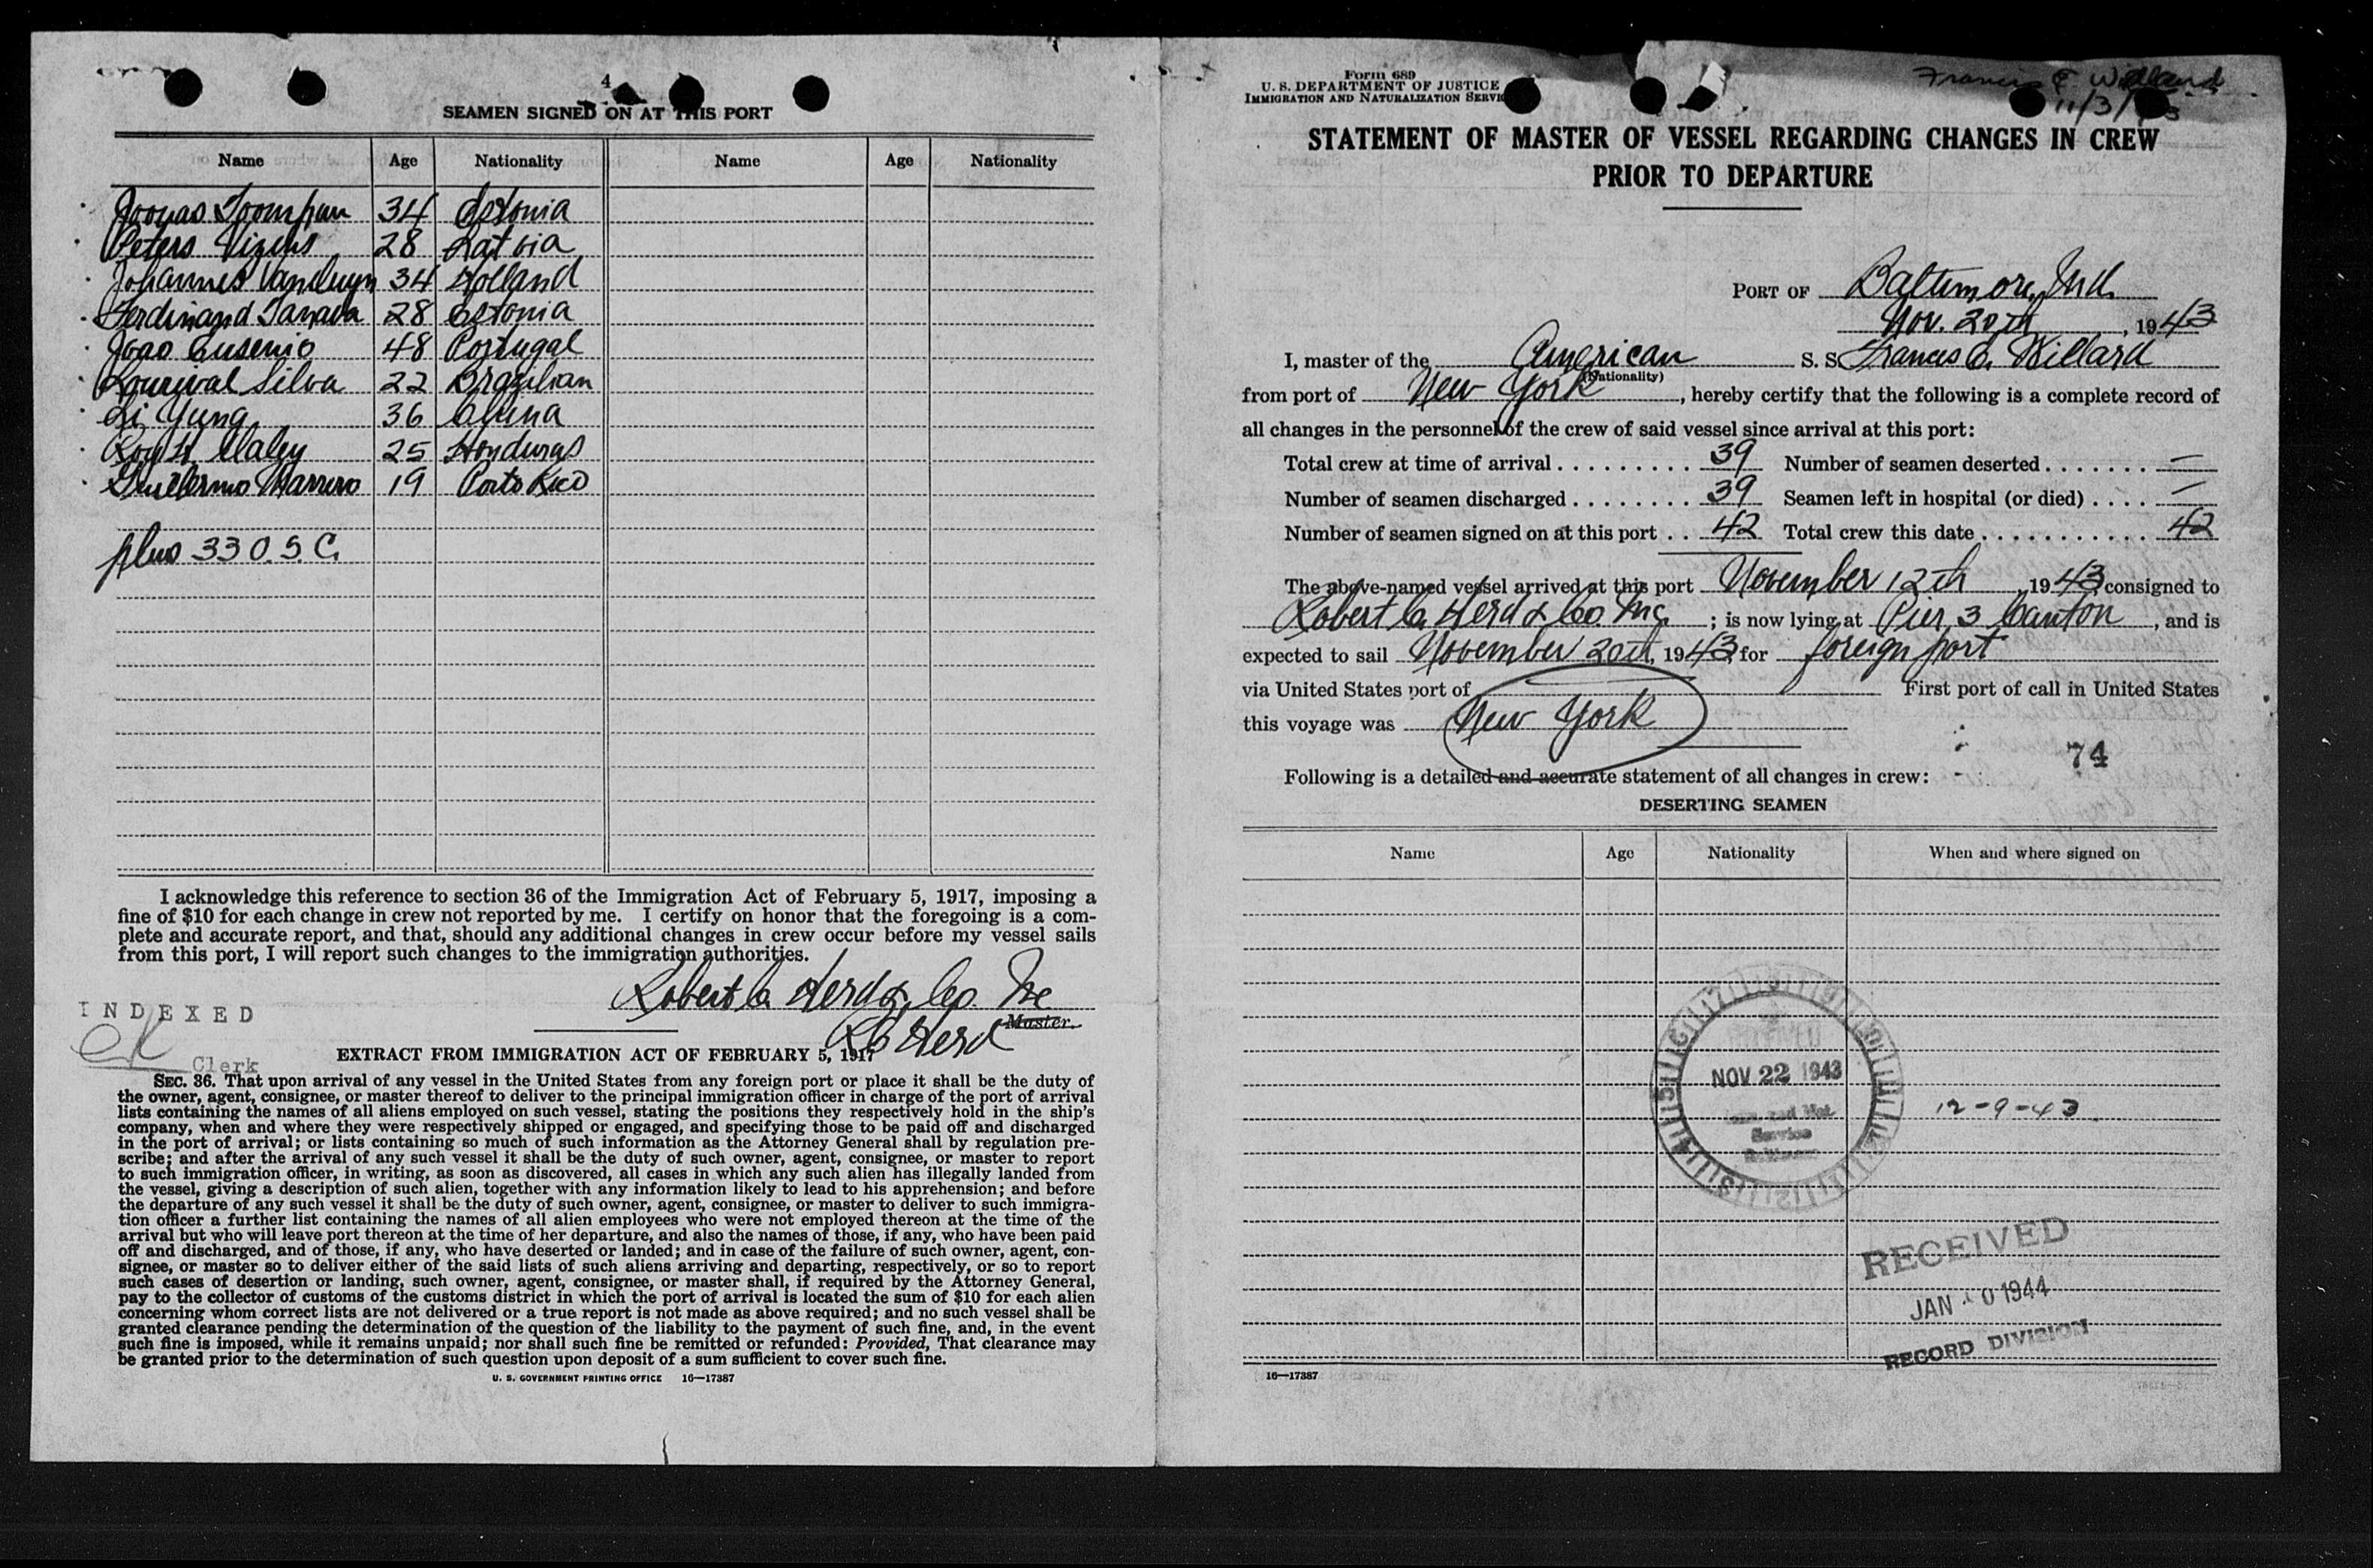 4
SEAMEN SIGNED ON AT THIS PORT
Name Age Nationality Name Age Nationality
Joonas 34 Estonia
Peters 28 Latvia
Johannes 34 Holland
Ferdinand 28 Estonia
Joao Eusenio 48 Portugal
Lourival Silva 22 Brazilian
Li Yung 36 China
Roy H. Haley 25 Honduras
Guillermo Marrero 19 Porto Rico
plus 33 U.S.C.
I acknowledge this reference to section 36 of the Immigration Act of February 5, 1917, imposing a
fine of $10 for each change in crew not reported by me. I certify on honor that the foregoing is a com-
plete and accurate report, and that, should any additional changes in crew occur before my vessel sails
from this port, I will report such changes to the immigration authorities.
Robert C. Herd & Co. Inc
Master.
R C Herd
INDEXED
Clerk
EXTRACT FROM IMMIGRATION ACT OF FEBRUARY 5, 1917
SEC. 36. That upon arrival of any vessel in the United States from any foreign port or place it shall be the duty of
the owner, agent, consignee, or master thereof to deliver to the principal immigration officer in charge of the port of arrival
lists containing the names of all aliens employed on such vessel, stating the positions they respectively hold in the ship's
company, when and where they were respectively shipped or engaged, and specifying those to be paid off and discharged
in the port of arrival; or lists containing so much of such information as the Attorney General shall by regulation pre-
scribe; and after the arrival of any such vessel it shall be the duty of such owner, agent, consignee, or master to report
to such immigration officer, in writing, as soon as discovered, all cases in which any such alien has illegally landed from
the vessel, giving a description of such alien, together with any information likely to lead to his apprehension; and before
the departure of any such vessel it shall be the duty of such owner, agent, consignee, or master to deliver to such immigra-
tion officer a further list containing the names of all alien employees who were not employed thereon at the time of the
arrival but who will leave port thereon at the time of her departure, and also the names of those, if any, who have been paid
off and discharged, and of those, if any, who have deserted or landed; and in case of the failure of such owner, agent, con-
signee, or master so to deliver either of the said lists of such aliens arriving and departing, respectively, or so to report
such cases of desertion or landing, such owner, agent, consignee, or master shall, if required by the Attorney General,
pay to the collector of customs of the customs district in which the port of arrival is located the sum of $10 for each alien
concerning whom correct lists are not delivered or a true report is not made as above required; and no such vessel shall be
granted clearance pending the determination of the question of the liability to the payment of such fine, and, in the event
such fine is imposed, while it remains unpaid; nor shall such fine be remitted or refunded: Provided, That clearance may
be granted prior to the determination of such question upon deposit of a sum sufficient to cover such fine.
U. S. GOVERNMENT PRINTING OFFICE 16—17387
Form 689
U. S. DEPARTMENT OF JUSTICE
IMMIGRATION AND NATURALIZATION SERVICE
Francis E. Willard
11/3/
STATEMENT OF MASTER OF VESSEL REGARDING CHANGES IN CREW
PRIOR TO DEPARTURE
PORT OF Baltimore, Md.
Nov. 20th, 1943
I, master of the American S. S. Frances E. Willard
(Nationality)
from port of New York, hereby certify that the following is a complete record of
all changes in the personnel of the crew of said vessel since arrival at this port:
Total crew at time of arrival . . . . . . . . . 39 Number of seamen deserted . . . . . . . —
Number of seamen discharged . . . . . . . . 39 Seamen left in hospital (or died) . . . . —
Number of seamen signed on at this port . . 42 Total crew this date . . . . . . . . . . . 42
The above-named vessel arrived at this port November 12th 1943 consigned to
Robert C. Herd & Co. Inc. ; is now lying at Pier 3 Canton, and is
expected to sail November 20th, 1943, for foreign port
via United States port of First port of call in United States
this voyage was New York
74
Following is a detailed and accurate statement of all changes in crew:
DESERTING SEAMEN
Name Age Nationality When and where signed on
NOV 22 1943
Service
12-9-43
RECEIVED
JAN 10 1944
RECORD DIVISION
16—17387